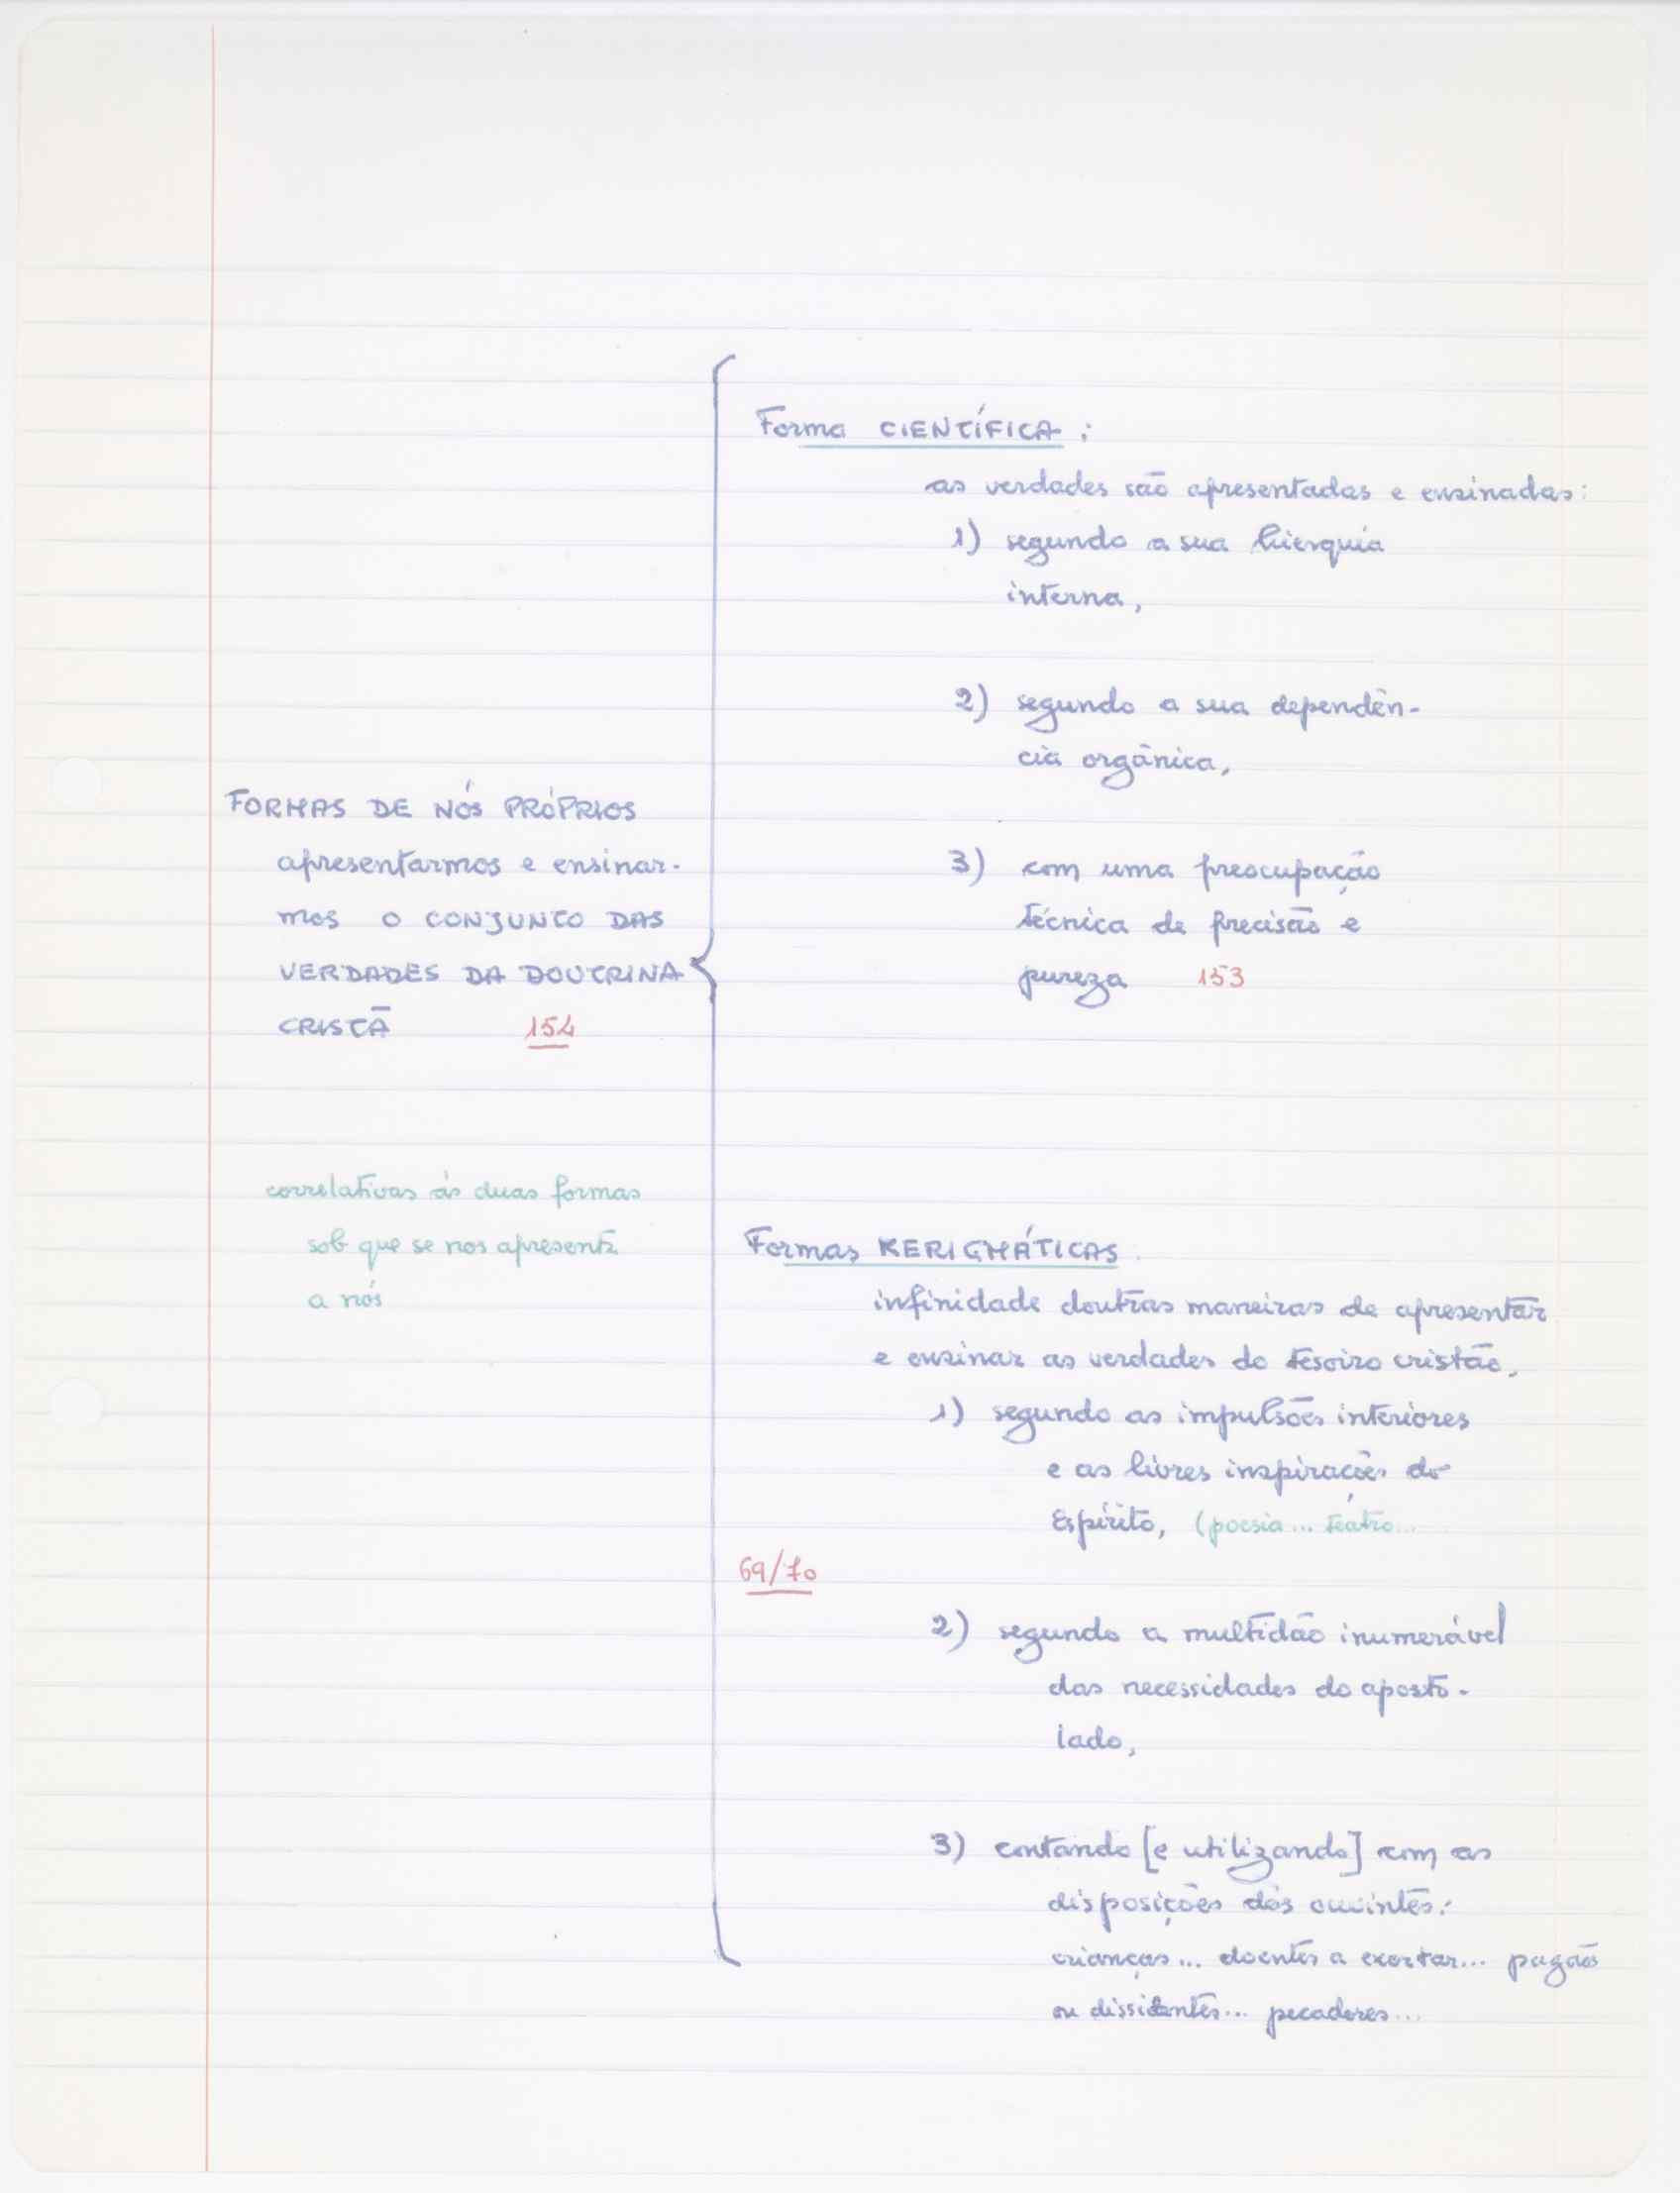 FORMAS DE NÓS PRÓPRIOS
apresentarmos e ensinar-
mos O CONJUNTO DAS
VERDADES DA DOUTRINA
CRISTÃ 154
correlativas às duas formas
sob que se nos apresenta
a nós
Forma CIENTÍFICA :
as verdades são apresentadas e ensinadas:
1) segundo a sua hierquia
interna,
2) segundo a sua dependên-
cia orgânica,
3) com uma preocupação
técnica de precisão e
pureza 153
Formas KERIGMÁTICAS
infinidade doutras maneiras de apresentar
e ensinar as verdades do tesoiro cristão,
1) segundo as impulsões interiores
e as livres inspirações do
Espírito, (poesia... teatro...
69/70
2) segundo a multidão inumerável
das necessidades do aposto-
lado,
3) contando [e utilizando] com as
disposições dos ouvintes:
crianças... doentes a exortar... pagãos
ou dissidentes... pecadores...